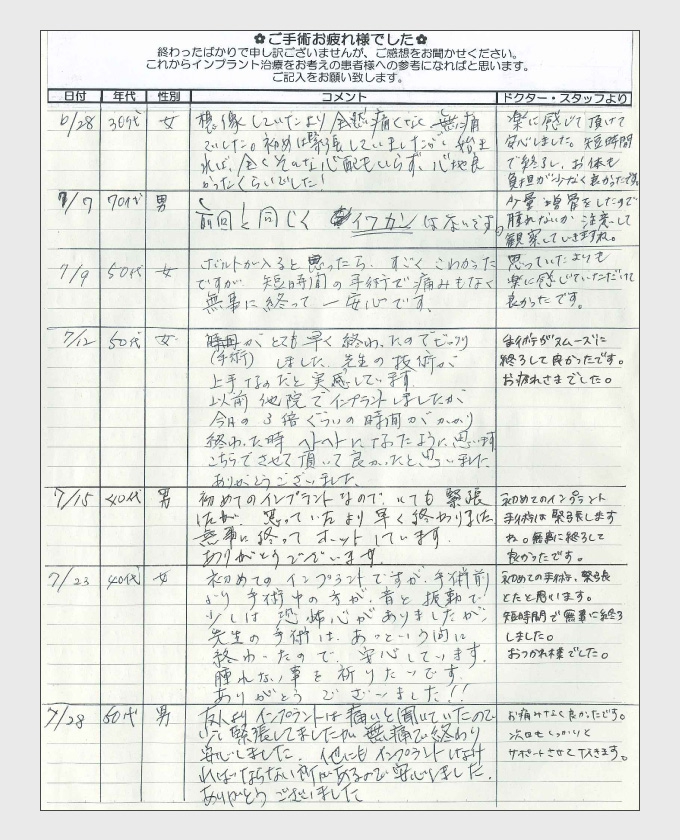 ✿ご手術お疲れ様でした✿
終わったばかりで申し訳ございませんが、ご感想をお聞かせください。
これからインプラント治療をお考えの患者様への参考になればと思います。
ご記入をお願い致します。
日付 年代 性別 コメント ドクター・スタッフより
6/28 30代 女
想像していたより全然痛くなく無痛
でした。初めは緊張していましたが、始ま
れば、全くそんな心配もいらず、心地良
かったくらいでした!
楽に感じて頂けて
安心しました。短時間
で終了し、お体も
負担が少なく良かったです。
7/7 70代 男
前回と同じく イワカンはないです。
少量増骨をしたので
腫れないか注意して
観察していきますね。
7/9 50代 女
ボルトが入ると思ったら、すごくこわかった
ですが、短時間の手術で痛みもなく
無事に終って一安心です。
思っていたよりも
楽に感じていただけて
良かったです。
7/12 50代 女
がとても早く終わったのでビックリ
(手術) しました。先生の技術が
上手なのだと実感しています。
以前他院でインプラントしましたが
今日の3倍ぐらいの時間がかかり
終わった時ヘトヘトになったように思います
こちらでさせて頂いて良かったと思いました
ありがとうございました。
手術がスムーズに
終了して良かったです。
お疲れさまでした。
7/15 40代 男
初めてのインプラントなので、とても緊張
したが、思っていたより早く終わりました
無事に終ってホットしています。
ありがとうございます。
初めてのインプラント
手術は緊張します
ね。無事に終了して
良かったです。
7/23 40代 女
初めてのインプラントですが、手術前
より手術中の方が、音と振動で
少しは恐怖心がありましたが、
先生の手術は、あっという間に
終わったので、安心しています。
腫れない事を祈りたいです。
ありがとうございました!!
初めての手術、緊張
したと思います。
短時間で無事に終了
しました。
おつかれ様でした。
7/28 60代 男
友人よりインプラントは痛いと聞いていたので
緊張してましたが無痛で終わり
安心しました。他にもインプラントしなけ
ればならない所があるので安心しました。
ありがとうございました
お痛みなく良かったです。
次回もしっかりと
サポートさせて頂きます。